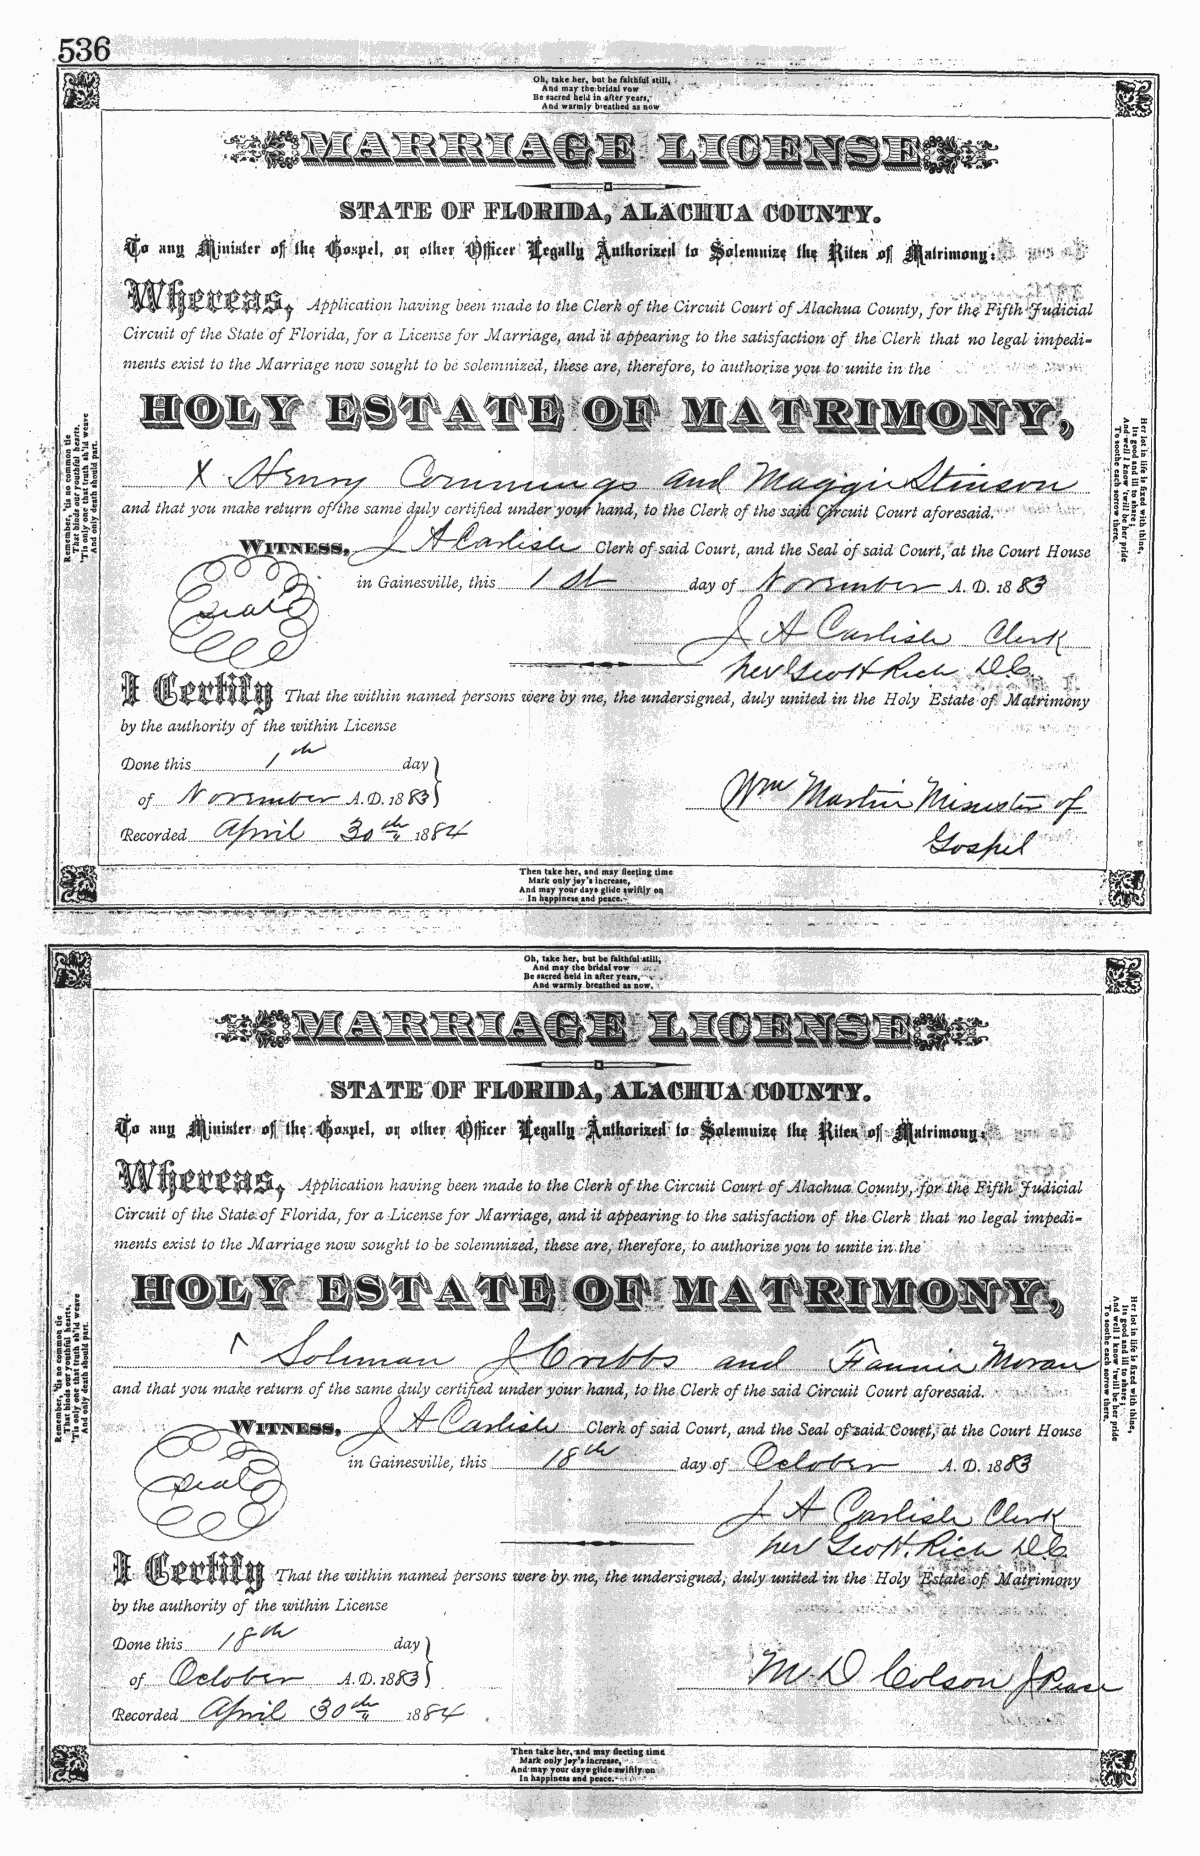 536
Oh, take her, but be faithful still,
And may the bridal vow
Be sacred held in after years,
And warmly breathed as now
MARRIAGE LICENSE
STATE OF FLORIDA, ALACHUA COUNTY.
To any Minister of the Gospel, or other Officer Legally Authorized to Solemnize the Rites of Matrimony:
Whereas, Application having been made to the Clerk of the Circuit Court of Alachua County, for the Fifth Judicial
Circuit of the State of Florida, for a License for Marriage, and it appearing to the satisfaction of the Clerk that no legal impedi-
ments exist to the Marriage now sought to be solemnized, these are, therefore, to authorize you to unite in the
HOLY ESTATE OF MATRIMONY,
X Henry Commings and Maggie Stinson
and that you make return of the same duly certified under your hand, to the Clerk of the said Circuit Court aforesaid.
WITNESS, J A Carlisle Clerk of said Court, and the Seal of said Court, at the Court House
in Gainesville, this 1st day of November A. D. 1883
Seal
J A Carlisle Clerk
per Geo H Rich D.C.
I Certify That the within named persons were by me, the undersigned, duly united in the Holy Estate of Matrimony
by the authority of the within License
Done this 1th day
of November A. D. 1883
Wm Martin Minister of
Gospel
Recorded April 30th 1884
Remember, 'tis no common tie
That binds our youthful hearts,
'Tis only one that truth sh'ld weave
And only death should part.
Her lot in life is fixed with thine,
Its good and ill to share;
And well I know 'twill be her pride
To soothe each sorrow there.
Then take her, and may fleeting time
Mark only joy's increase,
And may your days glide swiftly on
In happiness and peace.
Oh, take her, but be faithful still,
And may the bridal vow
Be sacred held in after years,
And warmly breathed as now.
MARRIAGE LICENSE
STATE OF FLORIDA, ALACHUA COUNTY.
To any Minister of the Gospel, or other Officer Legally Authorized to Solemnize the Rites of Matrimony:
Whereas, Application having been made to the Clerk of the Circuit Court of Alachua County, for the Fifth Judicial
Circuit of the State of Florida, for a License for Marriage, and it appearing to the satisfaction of the Clerk that no legal impedi-
ments exist to the Marriage now sought to be solemnized, these are, therefore, to authorize you to unite in the
HOLY ESTATE OF MATRIMONY,
Soloman J Cribbs and Fannie Moran
and that you make return of the same duly certified under your hand, to the Clerk of the said Circuit Court aforesaid.
WITNESS, J A Carlisle Clerk of said Court, and the Seal of said Court, at the Court House
in Gainesville, this 18th day of October A. D. 1883
Seal
J A Carlisle Clerk
per Geo H. Rich D.C.
I Certify That the within named persons were by me, the undersigned, duly united in the Holy Estate of Matrimony
by the authority of the within License
Done this 18th day
of October A. D. 1883
M D Colson J Peace
Recorded April 30th 1884
Remember, 'tis no common tie
That binds our youthful hearts,
'Tis only one that truth sh'ld weave
And only death should part.
Her lot in life is fixed with thine,
Its good and ill to share;
And well I know 'twill be her pride
To soothe each sorrow there.
Then take her, and may fleeting time
Mark only joy's increase,
And may your days glide swiftly on
In happiness and peace.